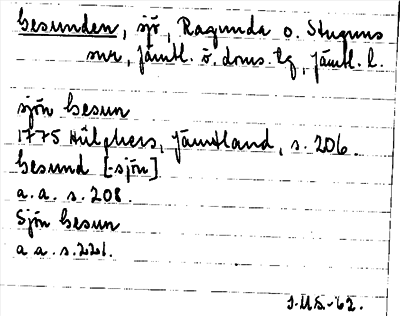 Gesunden, sjö, Ragunda o. Stuguns
snr, Jämtl. ö. doms. tg, Jämtl. l.
sjön Gesun
1775 Hülphers, Jämtland, s. 206.
Gesund [-sjön]
a. a. s. 208.
Sjön Gesun
a a. s. 221.
J.M.S.-62.